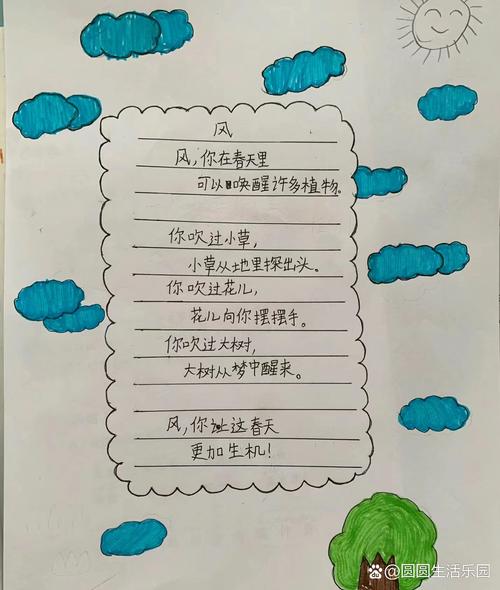 风
风,你在春天里
可以唤醒许多植物。
你吹过小草,
小草从地里探出头。
你吹过花儿,
花儿向你摆摆手。
你吹过大树,
大树从梦中醒来。
风,你让这春天
更加生机!
@圆圆生活乐园